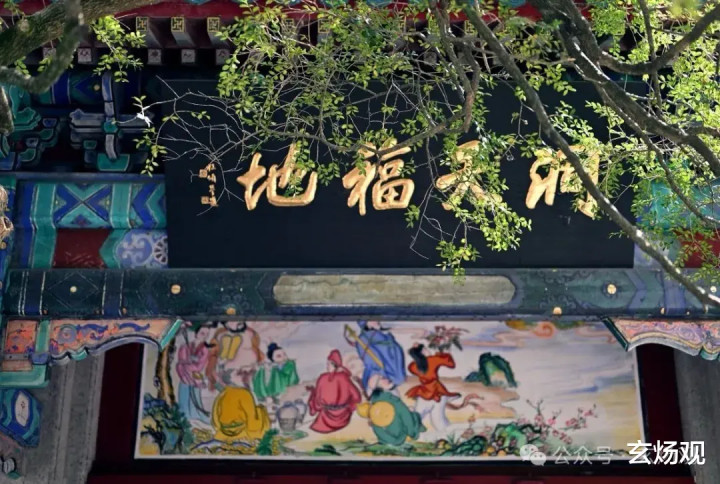 洞天福地
公众号
玄炀观